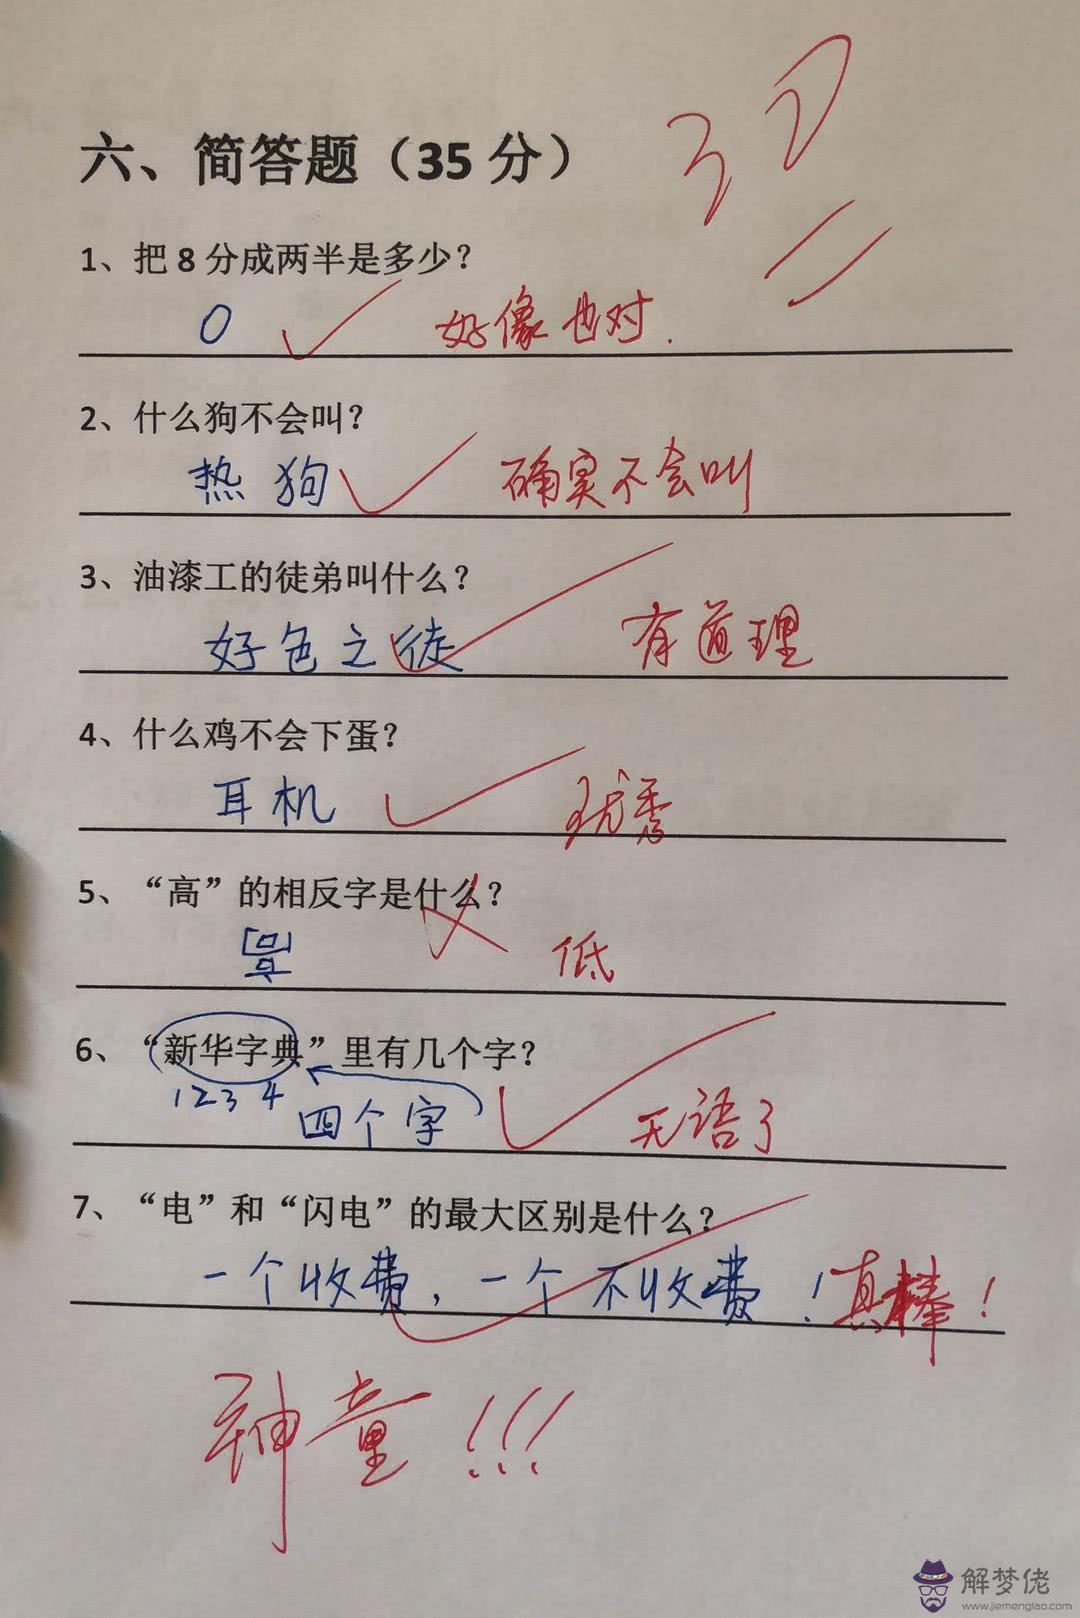 六、简答题（35 分）
30
1、把 8 分成两半是多少？
0 好像也对.
2、什么狗不会叫？
热狗 确实不会叫
3、油漆工的徒弟叫什么？
好色之徒 有道理
4、什么鸡不会下蛋？
耳机 优秀
5、“高”的相反字是什么？
低
6、“新华字典”里有几个字？
1 2 3 4 四个字 无语了
7、“电”和“闪电”的最大区别是什么？
一个收费，一个不收费！真棒！
神童!!!
解梦佬
www.jiemenglao.com